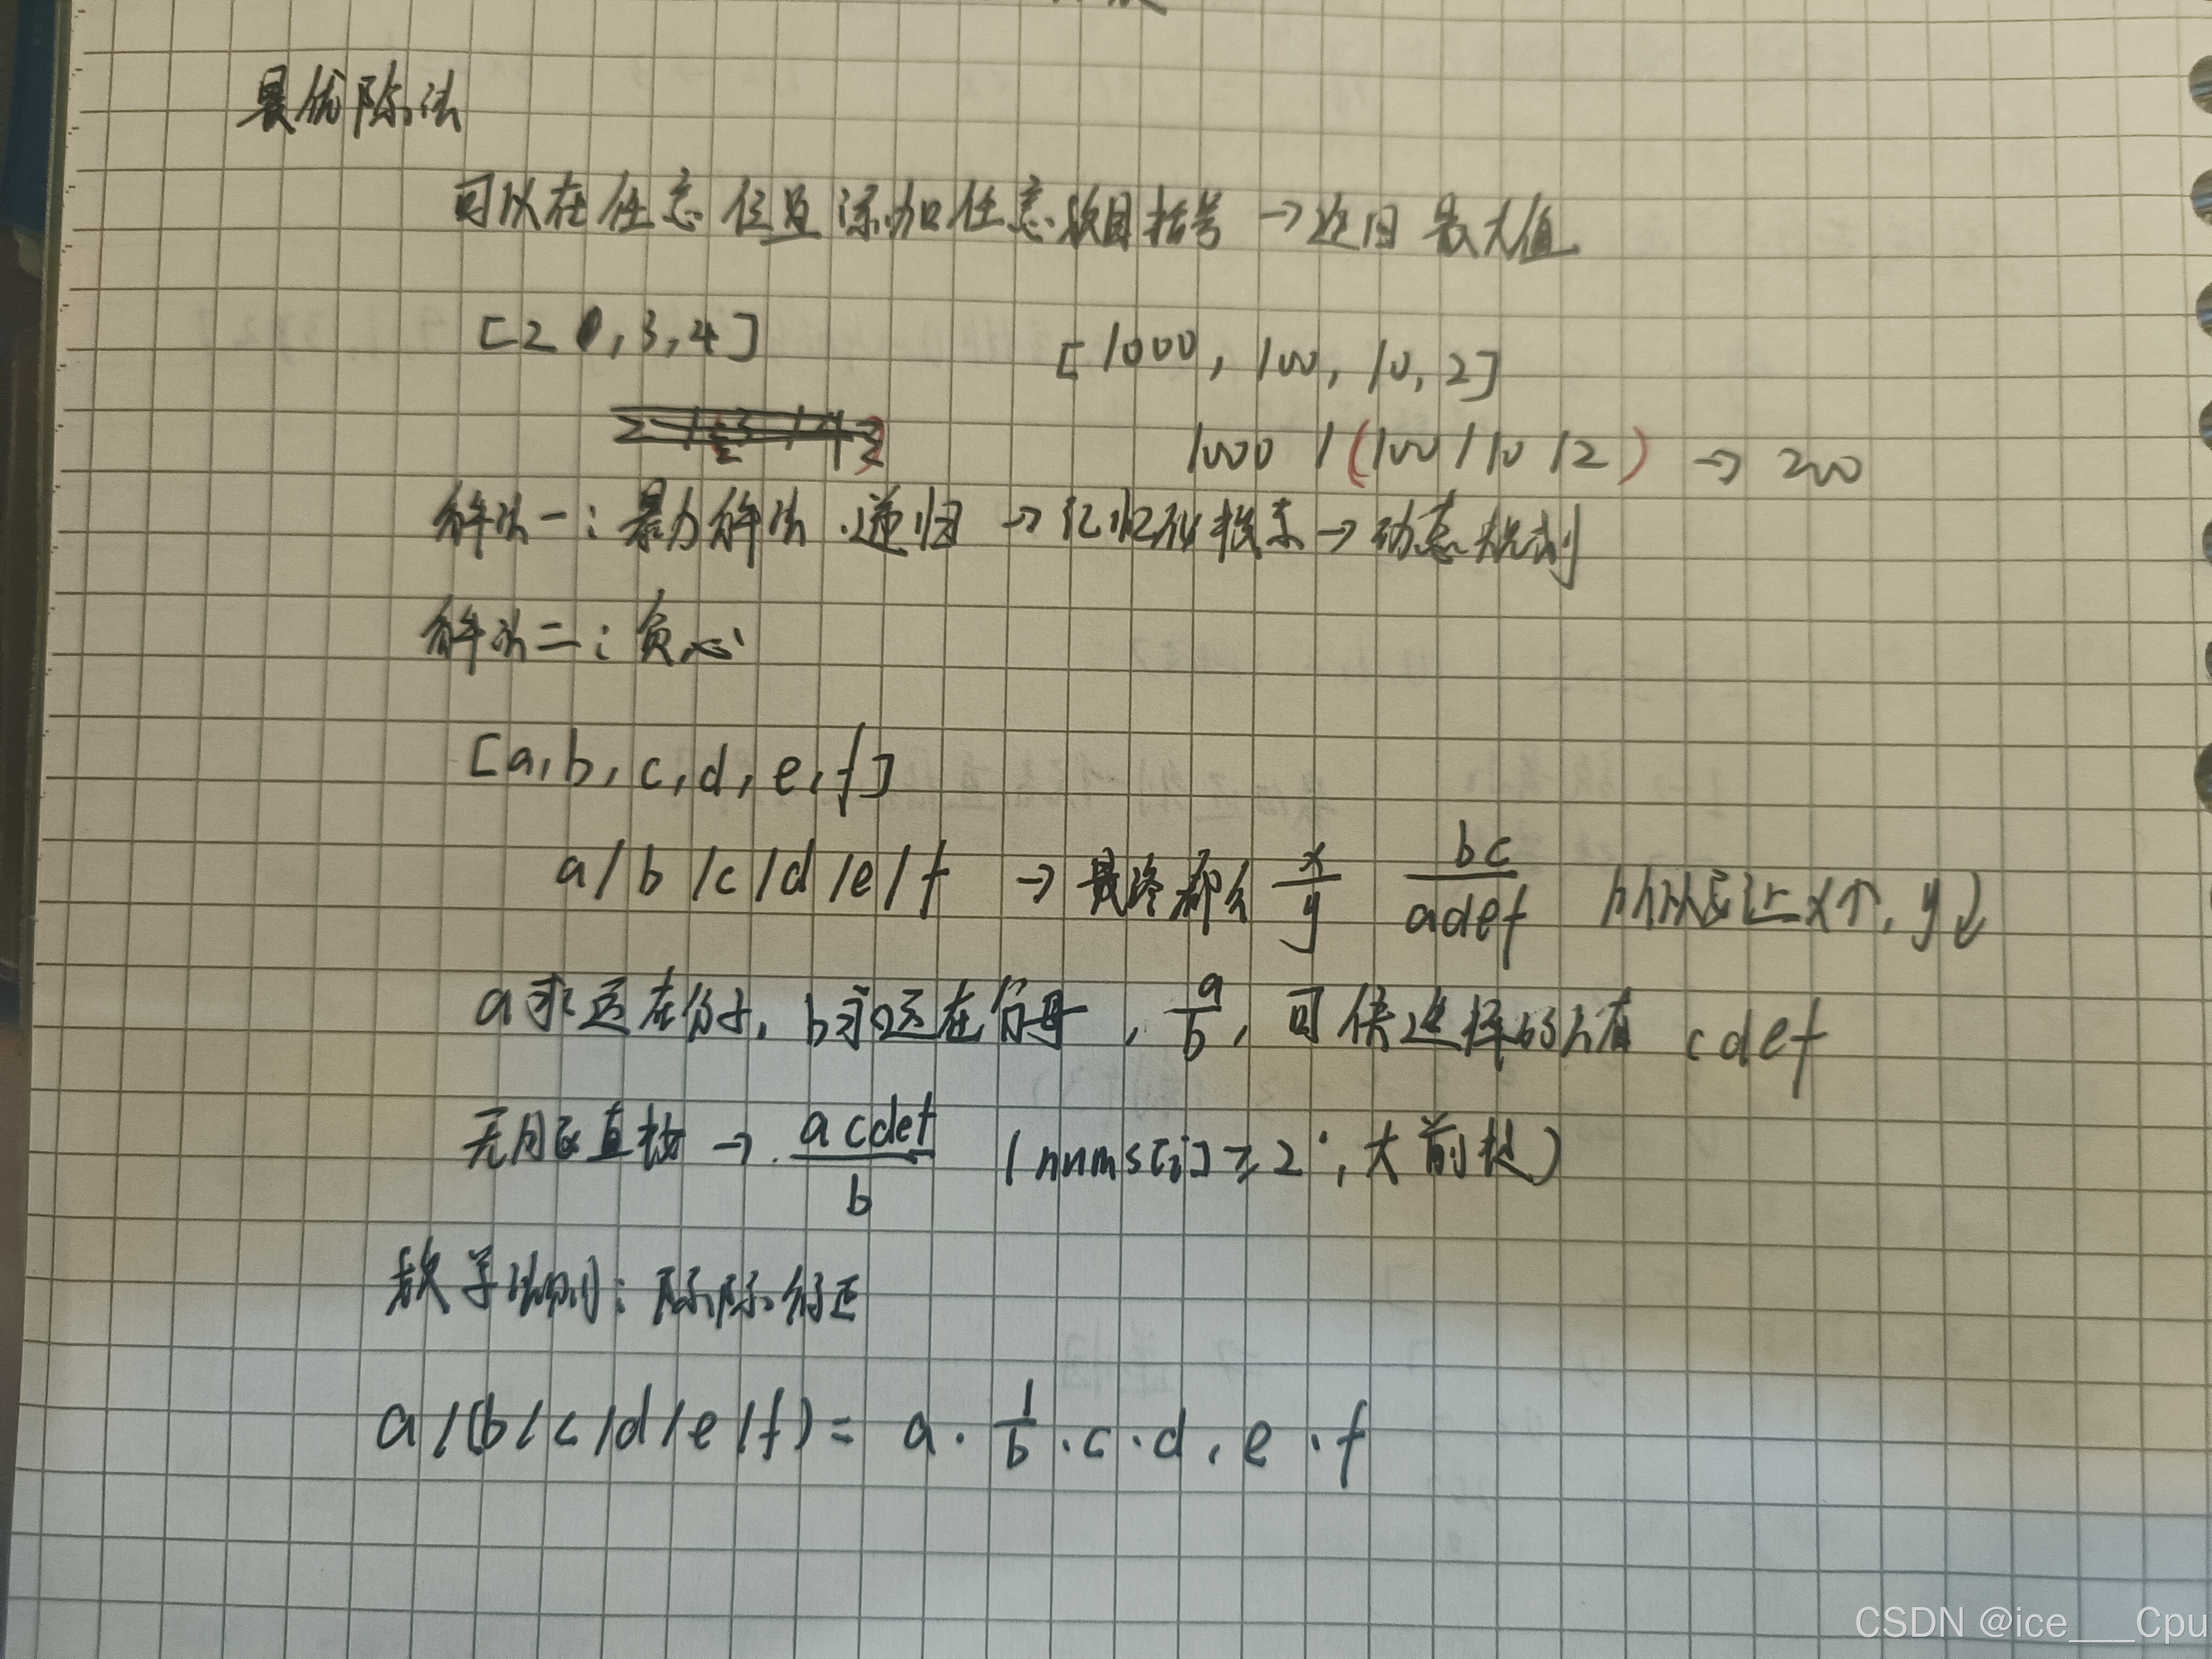 最优除法
可以在任意位置添加任意数目括号 → 返回最大值
[2 , 3, 4]
[1000, 100, 10, 2]
1000 / (100 / 10 / 2) → 200
解法一：暴力解法 . 递归 → 记忆化搜索 → 动态规划
解法二：贪心
[a, b, c, d, e, f]
a / b / c / d / e / f → 最终都会 x/y bc/adef x↑, y↓
a永远在分子, b永远在分母, a/b, 可供选择的只有 cdef
无脑直接 → acdef/b (nums[i] ≥ 2, 大前提)
数学法则：除除得正
a / (b / c / d / e / f) = a · 1/b · c · d · e · f
CSDN @ice___Cpu